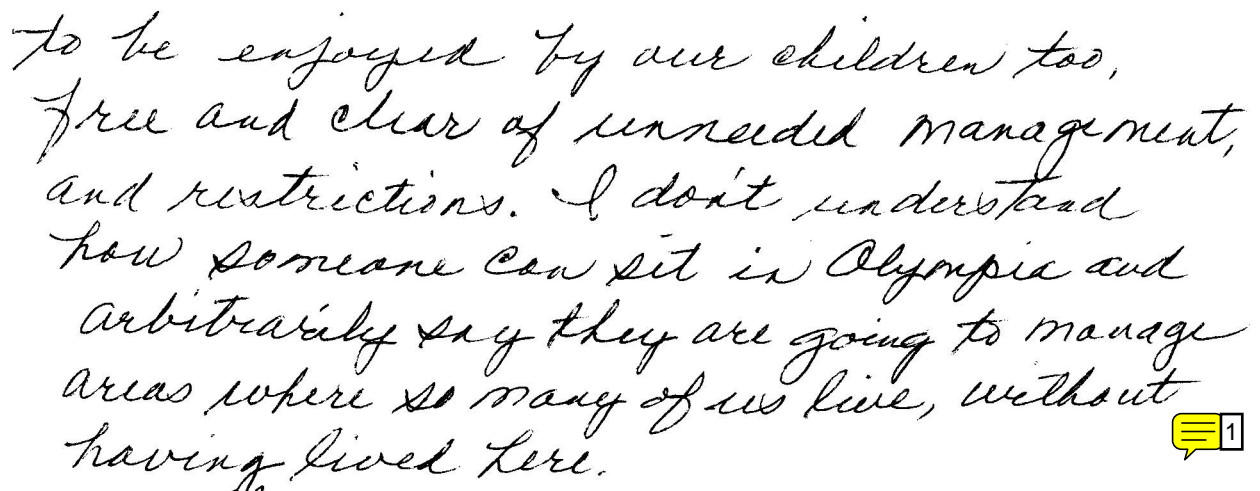 to be enjoyed by our children too,
free and clear of unneeded management,
and restrictions. I don't understand
how someone can sit in Olympia and
arbitrarily say they are going to manage
areas where so many of us live, without
having lived here.
1